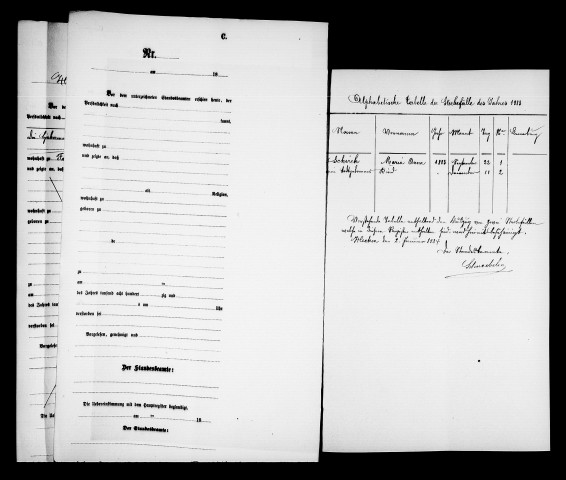 C.
Nr.
am 18
Vor dem unterzeichneten Standesbeamten erschien heute, der
Persönlichkeit nach
kannt,
wohnhaft zu
und zeigte an, daß
alt Religion,
wohnhaft zu
geboren zu
in
zu
am
des Jahres tausend acht hundert zig und
um Uhr
verstorben sei
Vorgelesen, genehmigt und
Der Standesbeamte:
Die Uebereinstimmung mit dem Hauptregister beglaubigt.
am 18
Der Standesbeamte:
Vor de
Persönlichkeit nach
wohnhaft zu
und zeigte an, daß
wohnhaft zu
geboren zu
zu
am
des Jahres tausend
um
verstorben sei
Vorgeles
Die Ue
Alphabetische Tabelle der Sterbefälle des Jahres 1883
Namen Vornamen Jahr Monat Tag Nro
Marie 1883 September 23 1
Kind " 11 2
Vorstehende Tabelle enthaltend den Auszug von zwei Sterbefällen
welche in diesem Register enthalten sind, wird hiermit bescheinigt.
den 2. Januar 1884
Der Standesbeamte.